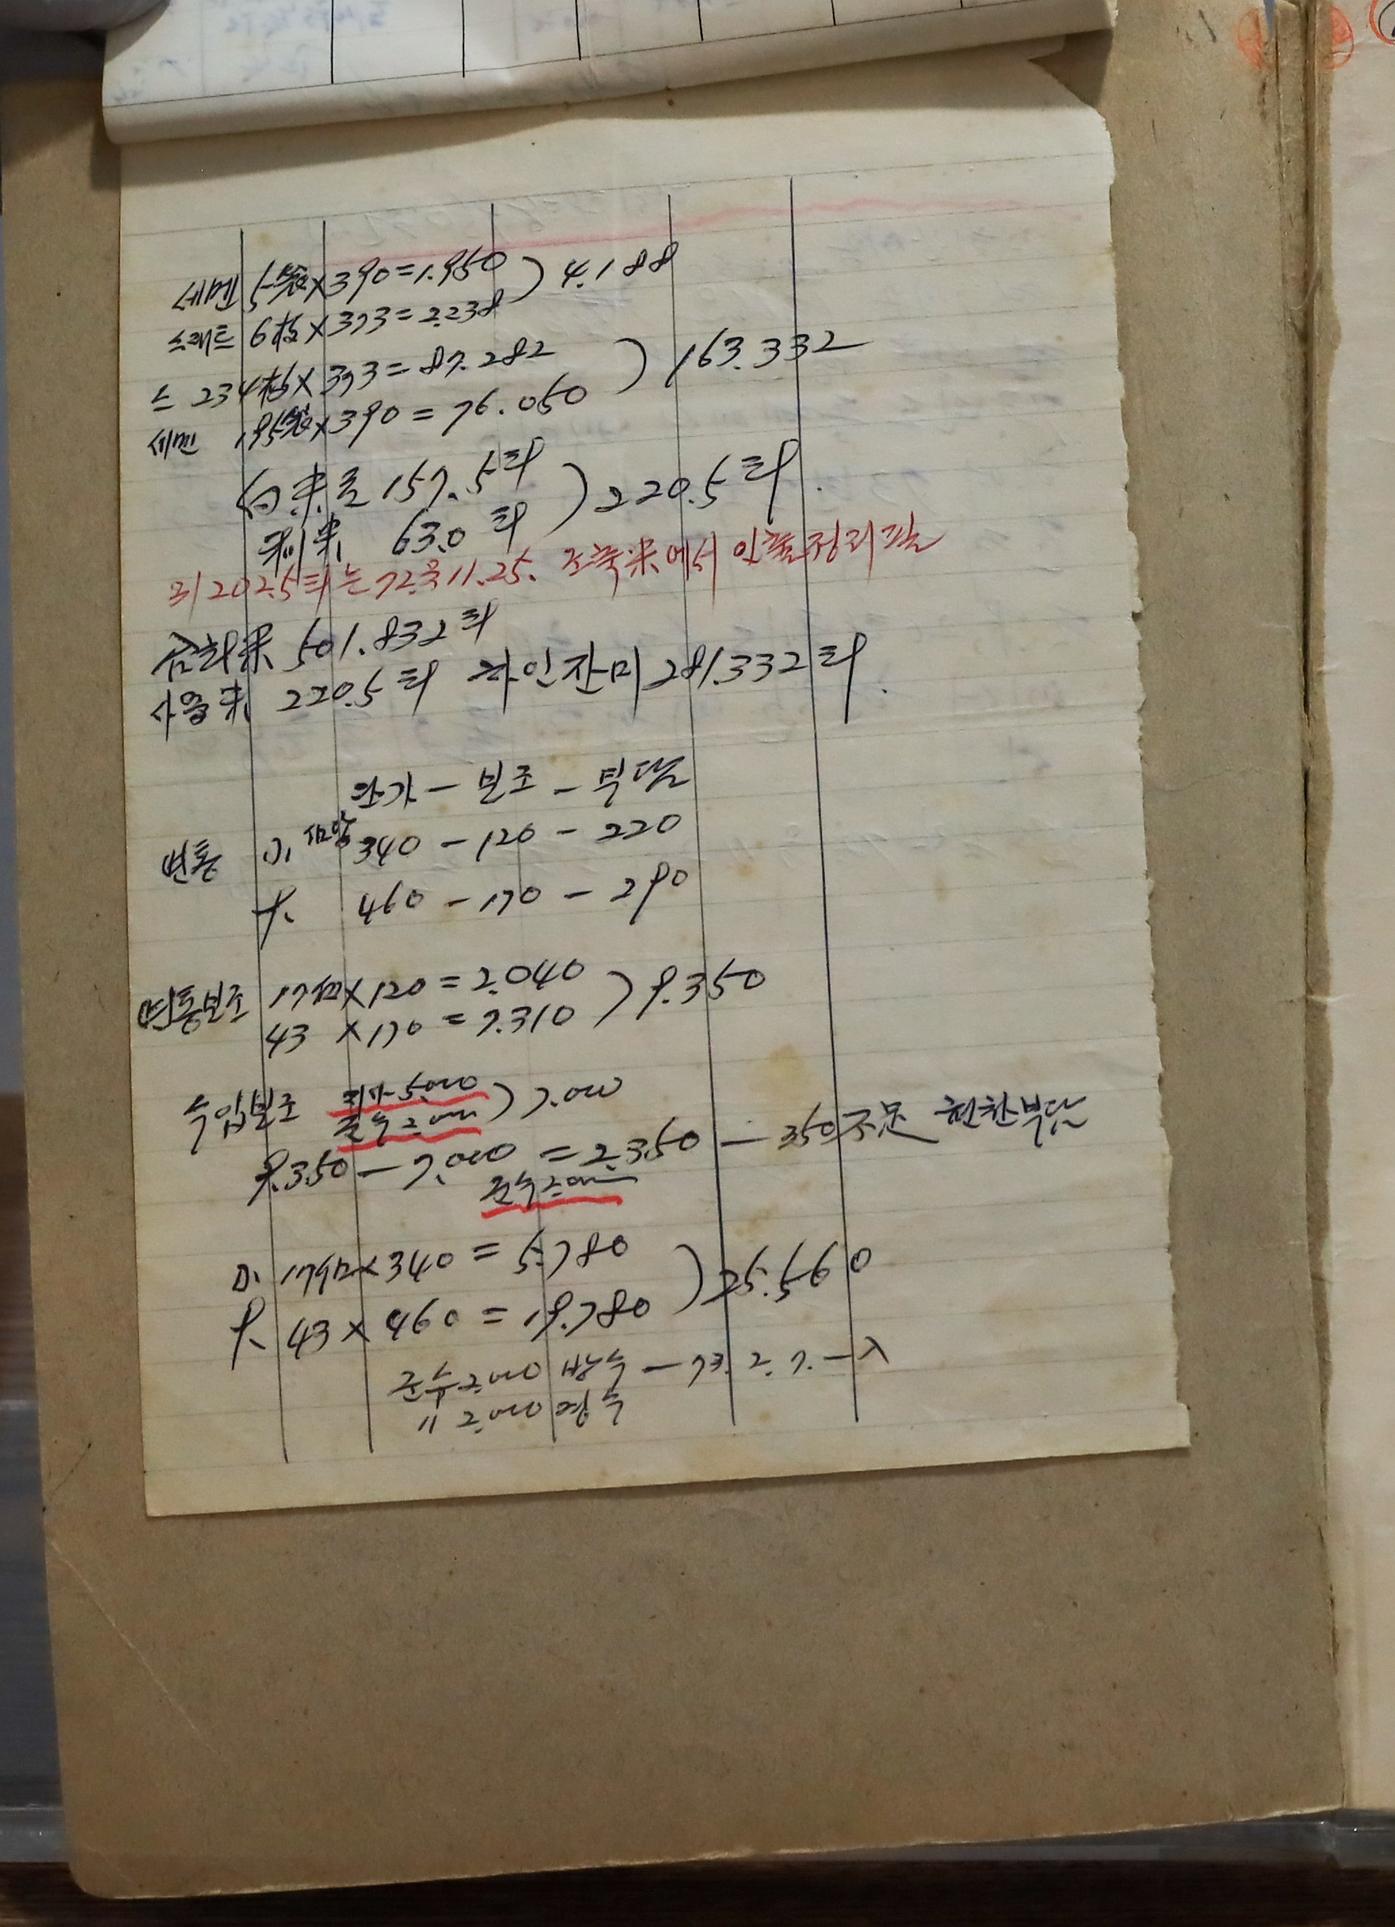 세멘 5袋×390=1.950 ) 4.188
스레트 6枚×373=2.238
스 234枚×373=87.282 ) 163.332
세멘 195袋×390=76.050
白米로 157.5되 ) 220.5되.
利米 63.0되
되 202.5되는 72文11.25. 조축米에서 인출정리필
合計米 501.832되
사용米 220.5되 차인잔미 281.332되.
단가 - 보조 - 부담
변통 小 340 - 120 - 220
大 460 - 170 - 290
변통보조 17個×120=2.040 ) 9.350
43×170=7.310
수입보조 5.000 ) 7.000
준수 2.000
9.350 - 7.000 = 2.350 - 350 不足 현찬부담
준수 2.000
小 17個×340=5.780 ) 25.560
大 43×460=19.780
준수 2.000 방수 - 73.2.7. - 入
〃 2.000 영수